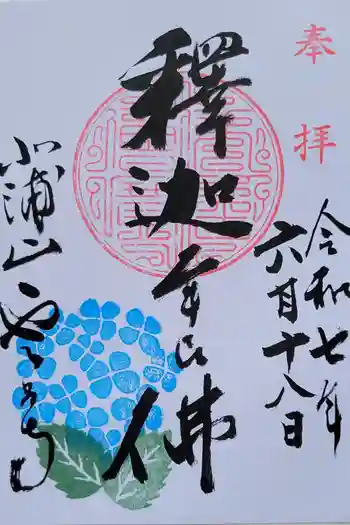 奉拝
令和七年
六月十八日
釋迦牟尼佛
北浦山